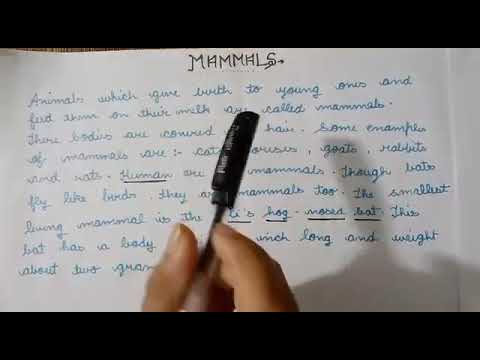 MAMMALS
Animals which give birth to young ones and
feed them on their melk are called mammals.
There bodies are covered hair. Some enamples
of mammals are :- cats, goats, rabbits
and rats. Human are mammals. Though bats
fly like birds, they are mammals too. The smallest
living mammal is the hog-nosed bat. This
bat has a body inch long and weight
about two